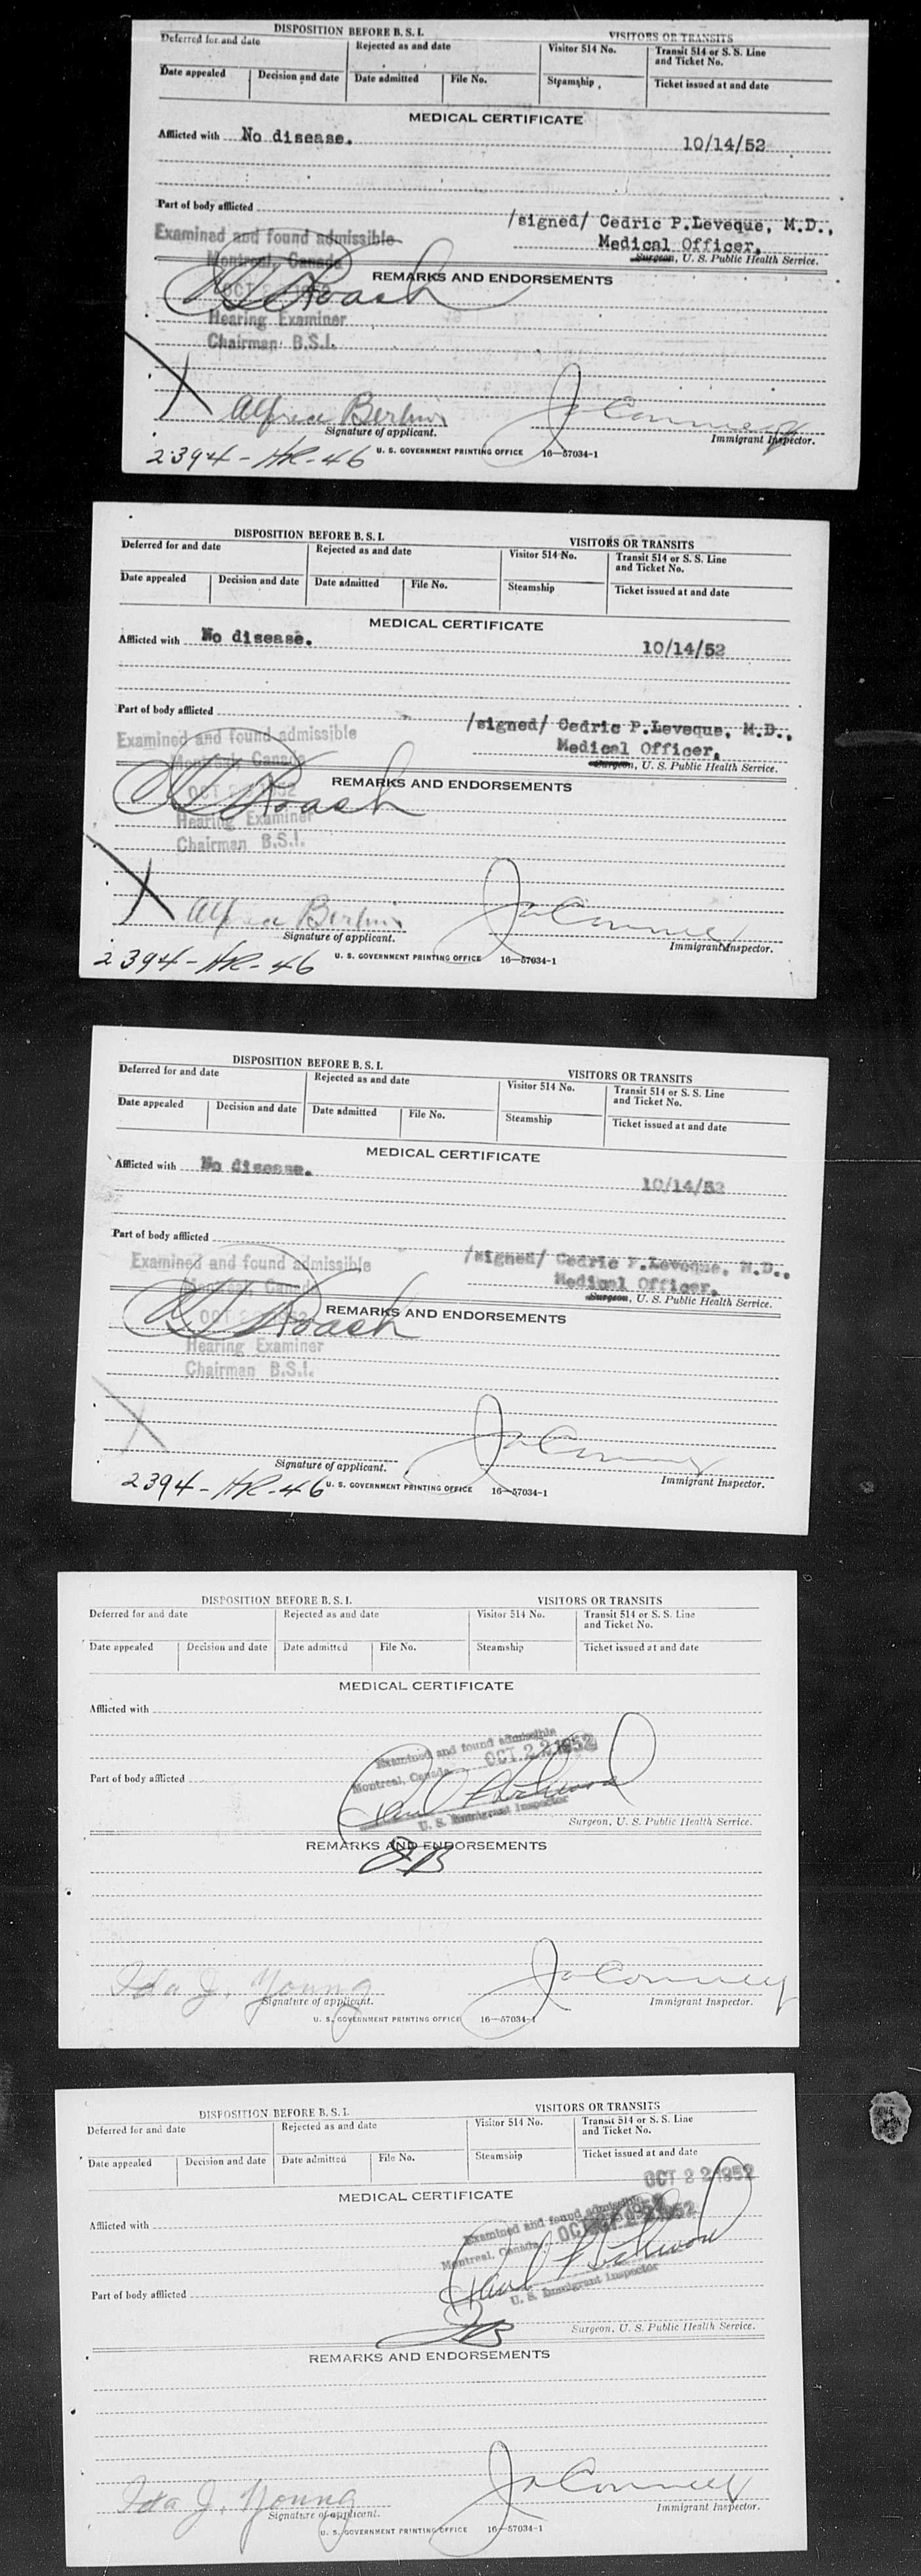 DISPOSITION BEFORE B. S. I.
VISITORS OR TRANSITS
Deferred for and date
Rejected as and date
Visitor 514 No.
Transit 514 or S. S. Line
and Ticket No.
Date appealed
Decision and date
Date admitted
File No.
Steamship
Ticket issued at and date
MEDICAL CERTIFICATE
Afflicted with No disease. 10/14/52
Part of body afflicted
/signed/ Cedric P.Leveque, M.D.,
Medical Officer,
Surgeon, U. S. Public Health Service.
Examined and found admissible
Montreal, Canada
OCT 1952
REMARKS AND ENDORSEMENTS
Roach
Hearing Examiner
Chairman B.S.I.
Alfred
Signature of applicant.
Immigrant Inspector.
2394-HR-46
U. S. GOVERNMENT PRINTING OFFICE 16—57034-1
DISPOSITION BEFORE B. S. I.
VISITORS OR TRANSITS
Deferred for and date
Rejected as and date
Visitor 514 No.
Transit 514 or S. S. Line
and Ticket No.
Date appealed
Decision and date
Date admitted
File No.
Steamship
Ticket issued at and date
MEDICAL CERTIFICATE
Afflicted with No disease. 10/14/52
Part of body afflicted
/signed/ Cedric P.Leveque, M.D.,
Medical Officer,
Surgeon, U. S. Public Health Service.
Examined and found admissible
Montreal, Canada
OCT 1952
REMARKS AND ENDORSEMENTS
Roach
Hearing Examiner
Chairman B.S.I.
Signature of applicant.
Immigrant Inspector.
2394-HR-46
U. S. GOVERNMENT PRINTING OFFICE 16—57034-1
DISPOSITION BEFORE B. S. I.
VISITORS OR TRANSITS
Deferred for and date
Rejected as and date
Visitor 514 No.
Transit 514 or S. S. Line
and Ticket No.
Date appealed
Decision and date
Date admitted
File No.
Steamship
Ticket issued at and date
MEDICAL CERTIFICATE
Afflicted with No disease. 10/14/52
Part of body afflicted
/signed/ Cedric P.Leveque, M.D.,
Medical Officer,
Surgeon, U. S. Public Health Service.
Examined and found admissible
Montreal, Canada
OCT
REMARKS AND ENDORSEMENTS
Roach
Hearing Examiner
Chairman B.S.I.
Signature of applicant.
Immigrant Inspector.
2394-HR-46
U. S. GOVERNMENT PRINTING OFFICE 16—57034-1
DISPOSITION BEFORE B. S. I.
VISITORS OR TRANSITS
Deferred for and date
Rejected as and date
Visitor 514 No.
Transit 514 or S. S. Line
and Ticket No.
Date appealed
Decision and date
Date admitted
File No.
Steamship
Ticket issued at and date
MEDICAL CERTIFICATE
Afflicted with
Examined and found admissible
Montreal, Canada OCT 22 1952
Part of body afflicted
Paul
U. S. Immigrant Inspector
Surgeon, U. S. Public Health Service.
REMARKS AND ENDORSEMENTS
Ida J. Young
Signature of applicant.
Immigrant Inspector.
U. S. GOVERNMENT PRINTING OFFICE 16—57034-1
DISPOSITION BEFORE B. S. I.
VISITORS OR TRANSITS
Deferred for and date
Rejected as and date
Visitor 514 No.
Transit 514 or S. S. Line
and Ticket No.
Date appealed
Decision and date
Date admitted
File No.
Steamship
Ticket issued at and date
OCT 22 1952
MEDICAL CERTIFICATE
Afflicted with
Examined and found admissible
Montreal, Canada
Part of body afflicted
Paul
U. S. Immigrant Inspector
Surgeon, U. S. Public Health Service.
REMARKS AND ENDORSEMENTS
Ida J. Young
Signature of applicant.
Immigrant Inspector.
U. S. GOVERNMENT PRINTING OFFICE 16—57034-1